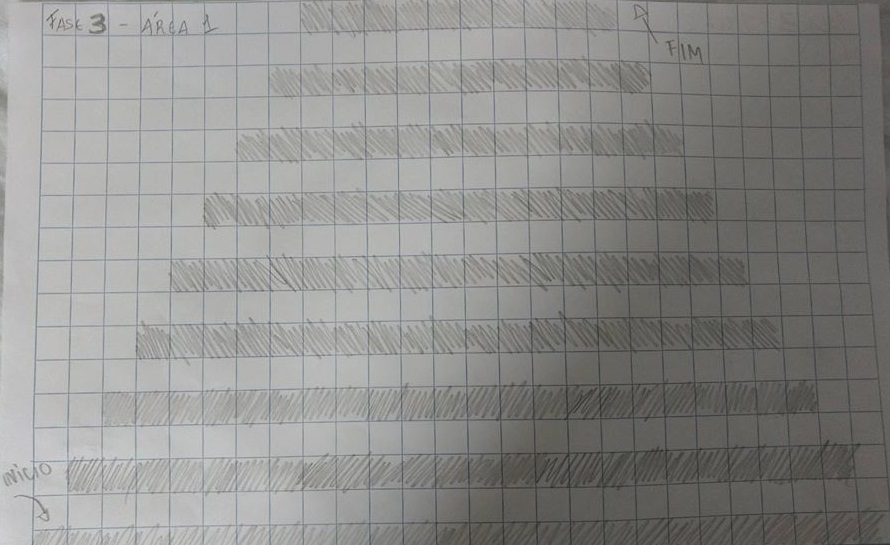 FASE 3 - ÁREA 1
FIM
INICIO